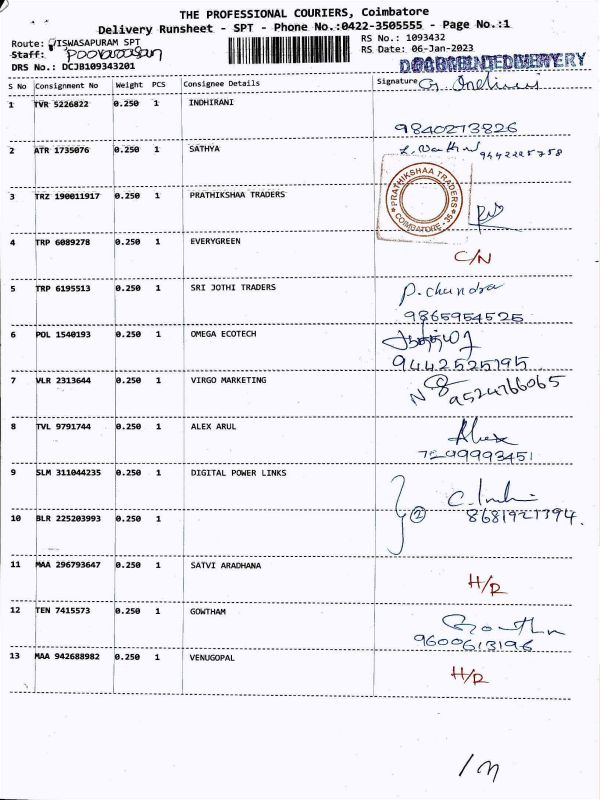 THE PROFESSIONAL COURIERS, Coimbatore
Delivery Runsheet - SPT - Phone No.:0422-3505555 - Page No.:1
Route: VISWASAPURAM SPT
RS No.: 1093432
Staff: Poovarasan
RS Date: 06-Jan-2023
DRS No.: DCJB109343201
S No Consignment No Weight PCS Consignee Details Signature
1 TVR 5226822 0.250 1 INDHIRANI
9840273826
2 ATR 1735076 0.250 1 SATHYA 9442225758
3 TRZ 190011917 0.250 1 PRATHIKSHAA TRADERS
PRATHIKSHAA TRADERS
COIMBATORE - 35
4 TRP 6089278 0.250 1 EVERYGREEN C/N
5 TRP 6195513 0.250 1 SRI JOTHI TRADERS P. chandra
9865954525
6 POL 1540193 0.250 1 OMEGA ECOTECH
9442525195
7 VLR 2313644 0.250 1 VIRGO MARKETING 9524766065
8 TVL 9791744 0.250 1 ALEX ARUL Alex
7249993451
9 SLM 311044235 0.250 1 DIGITAL POWER LINKS
10 BLR 225203993 0.250 1 2 8681921394
11 MAA 296793647 0.250 1 SATVI ARADHANA H/R
12 TEN 7415573 0.250 1 GOWTHAM
9600613196
13 MAA 942688982 0.250 1 VENUGOPAL H/R